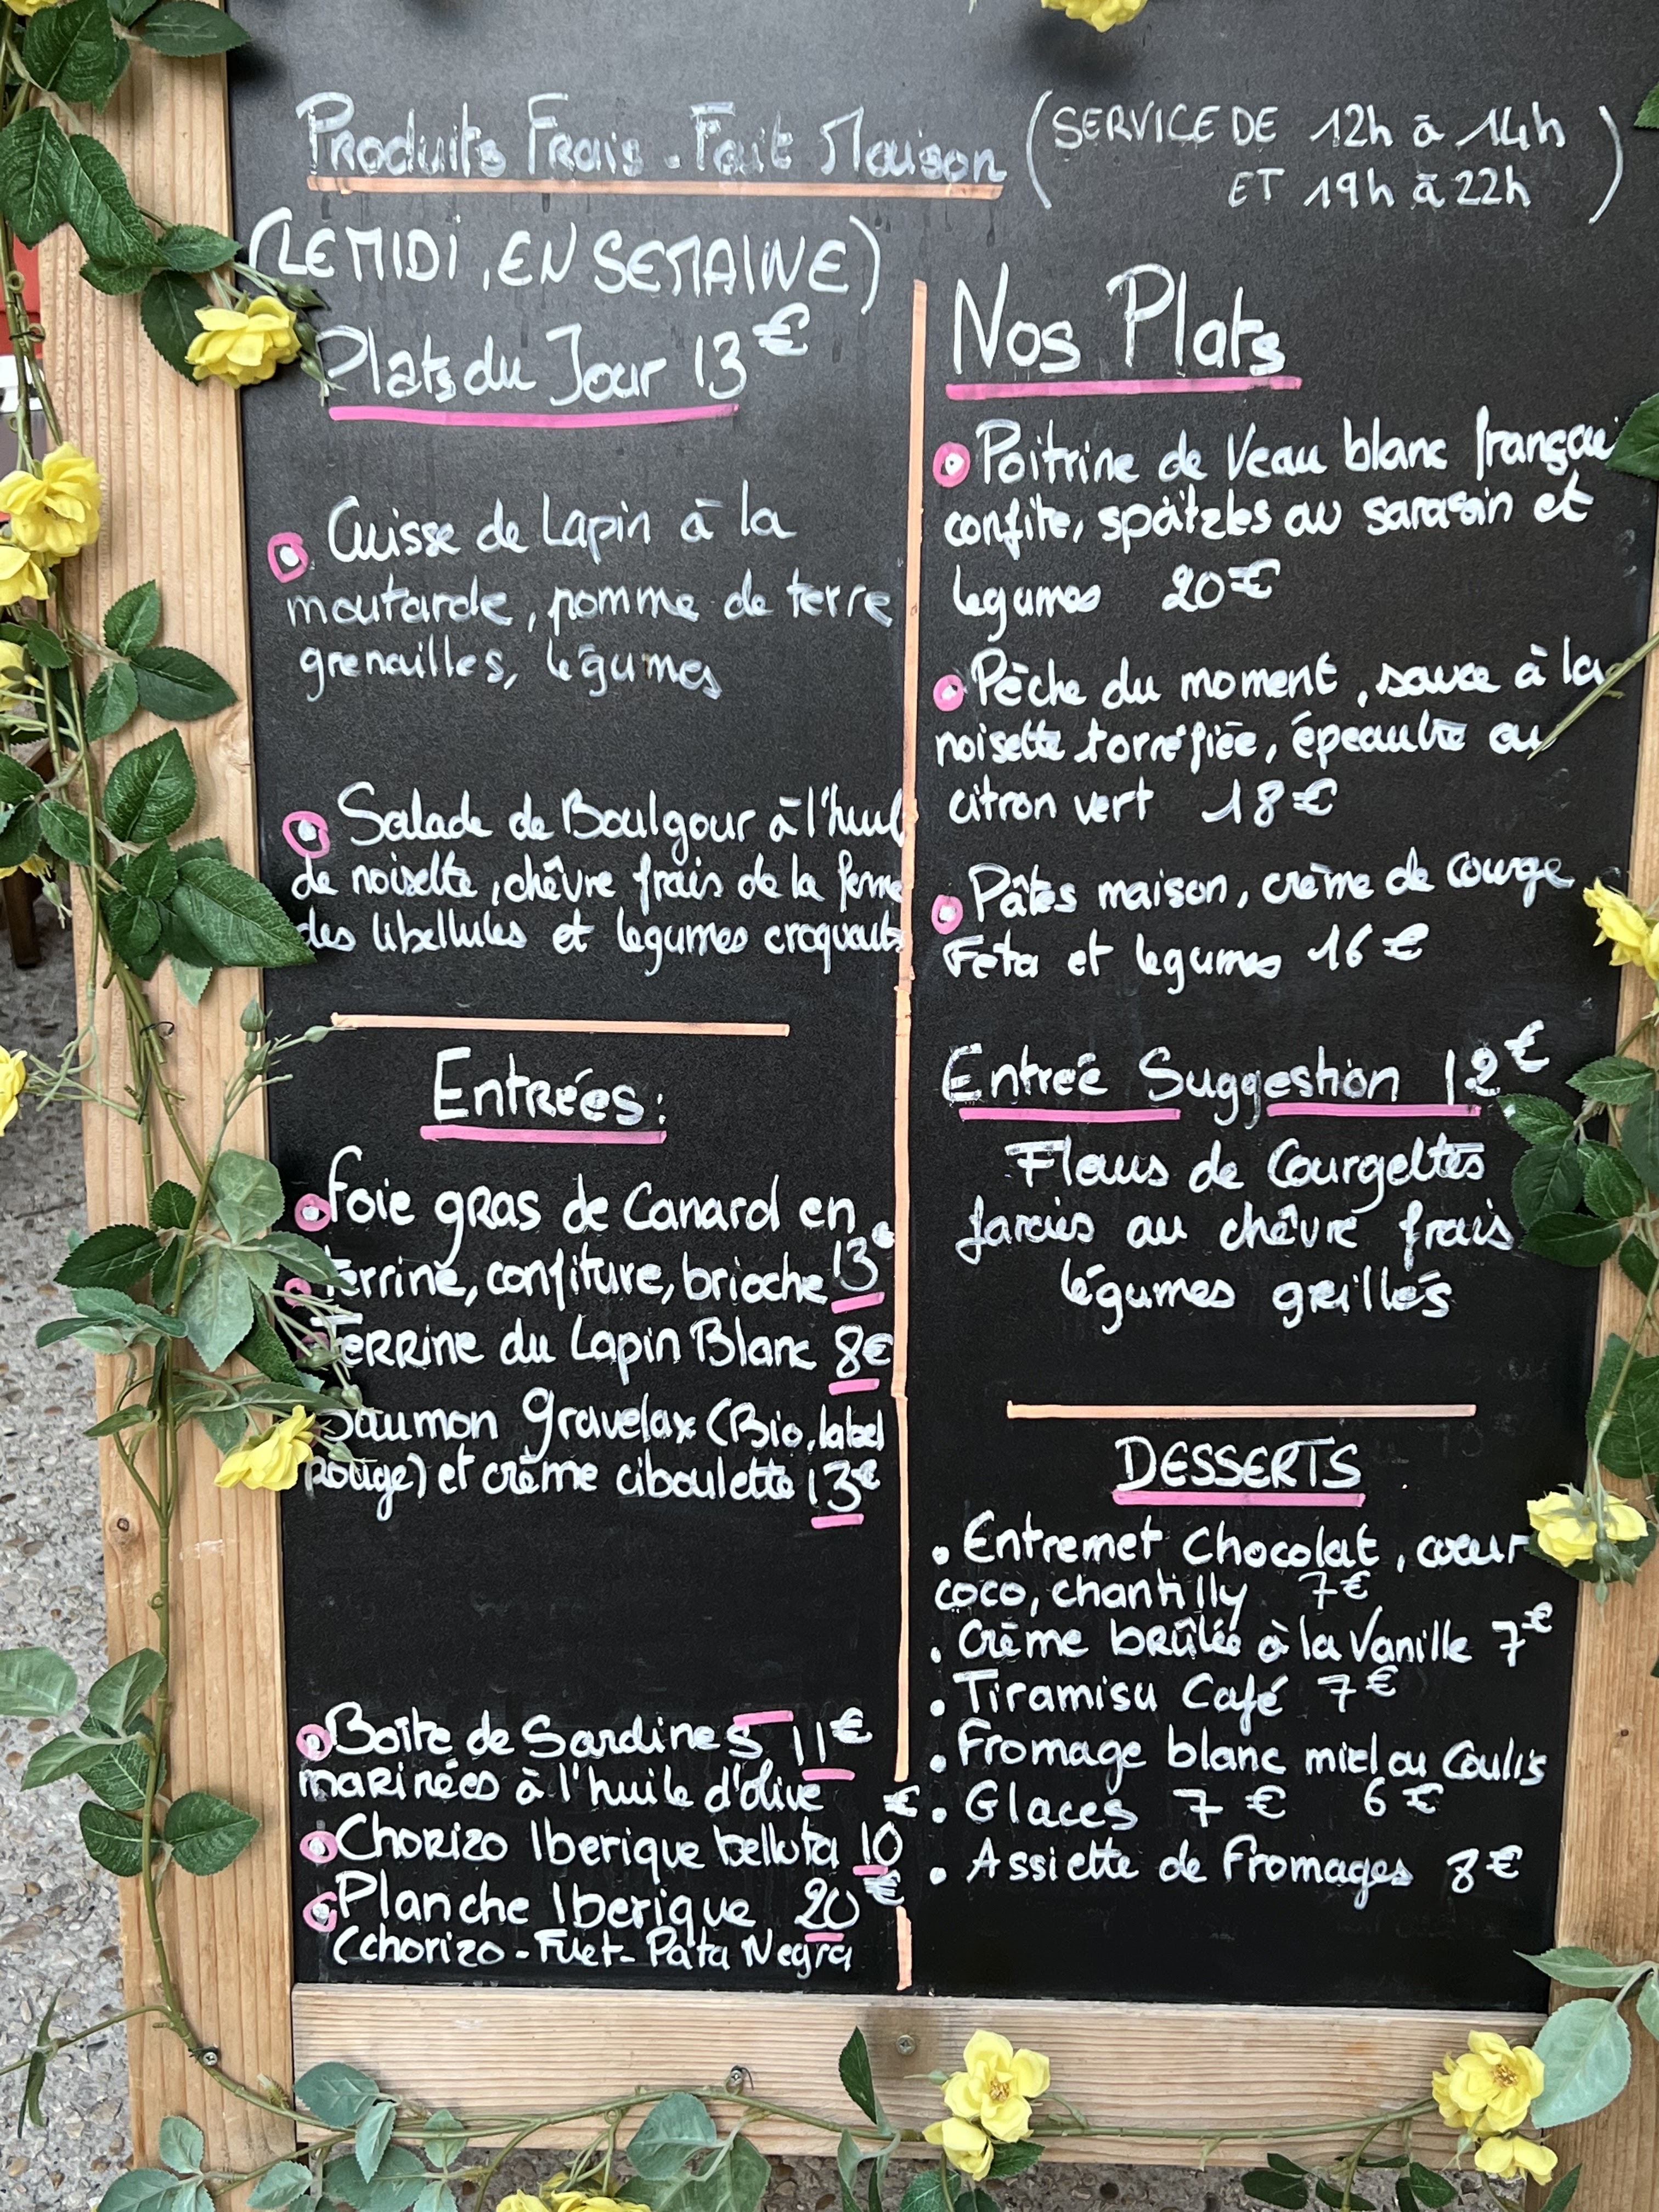 Produits Frais - Fait Maison
(SERVICE DE 12h à 14h
ET 19h à 22h)
(LE MIDI, EN SEMAINE)
Plats du Jour 13€
Cuisse de Lapin à la
moutarde, pomme de terre
grenailles, légumes
Salade de Boulgour à l'huil
de noisette, chêvre frais de la ferme
des libellules et legumes croquants
Entrées:
Foie gras de Canard en
terrine, confiture, brioche 13€
Terrine du Lapin Blanc 8€
Saumon gravelax (Bio, label
rouge) et crème ciboulette 13€
Boîte de Sardines 11€
marinées à l'huile d'olive
Chorizo Iberique bellota 10€
Planche Iberique 20€
(chorizo - Fuet - Pata Negra
Nos Plats
Poitrine de Veau blanc françai
confite, spätzles au sarasin et
legumes 20€
Pèche du moment, sauce à la
noisette torréfiée, épeautre au
citron vert 18€
Pâtes maison, crème de courge
Feta et legumes 16€
Entreé Suggestion 12€
Fleurs de Courgettes
farcies au chêvre frais
légumes grillés
DESSERTS
. Entremet Chocolat, coeur
coco, chantilly 7€
. Crème brûlée à la Vanille 7€
. Tiramisu Café 7€
. Fromage blanc miel ou Coulis
6€
. Glaces 7€
. Assiette de Fromages 8€